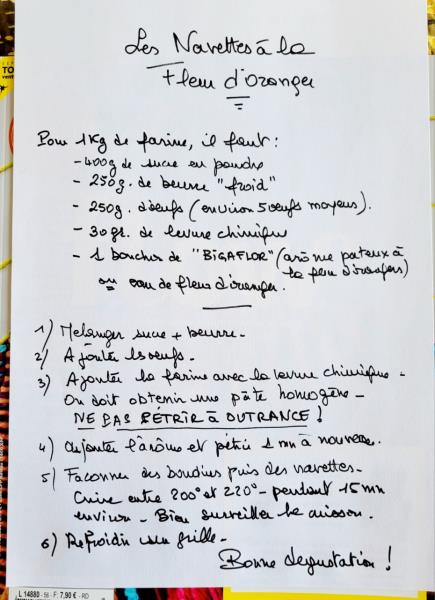 Les Navettes à la
Fleur d'Oranger
Pour 1Kg de farine, il faut :
- 400g de sucre en poudre
- 250g. de beurre "froid"
- 250g. d'oeufs (environ 5 oeufs moyens).
- 30gr. de levure chimique
- 1 bouchon de "BIGAFLOR" (arôme pateux à
la fleur d'oranger)
ou eau de fleur d'oranger.
1) Mélanger sucre + beurre -
2) Ajouter les oeufs -
3) Ajouter la farine avec la levure chimique -
On doit obtenir une pâte homogène -
NE PAS PÉTRIR À OUTRANCE !
4) Ajouter l'arôme et pétrir 1 mn à nouveau.
5) Façonner des boudins puis des navettes -
Cuire entre 200° et 220° - pendant 15 mn
environ - Bien surveiller la cuisson.
6) Refroidir sur grille -
Bonne dégustation !
L 14880 - 56 - F: 7,90 € - RD